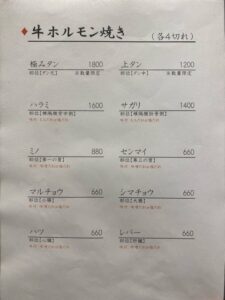 牛ホルモン焼き (各4切れ)
極みタン 1800
部位【タン元】 ※数量限定
上タン 1200
部位【タン中】 ※数量限定
ハラミ 1600
部位【横隔膜背中側】
サガリ 1400
部位【横隔膜肋骨側】
ミノ 880
部位【第一の胃】
センマイ 660
部位【第三の胃】
マルチョウ 660
部位【小腸】
シマチョウ 660
部位【大腸】
ハツ 660
部位【心臓】
レバー 660
部位【肝臓】